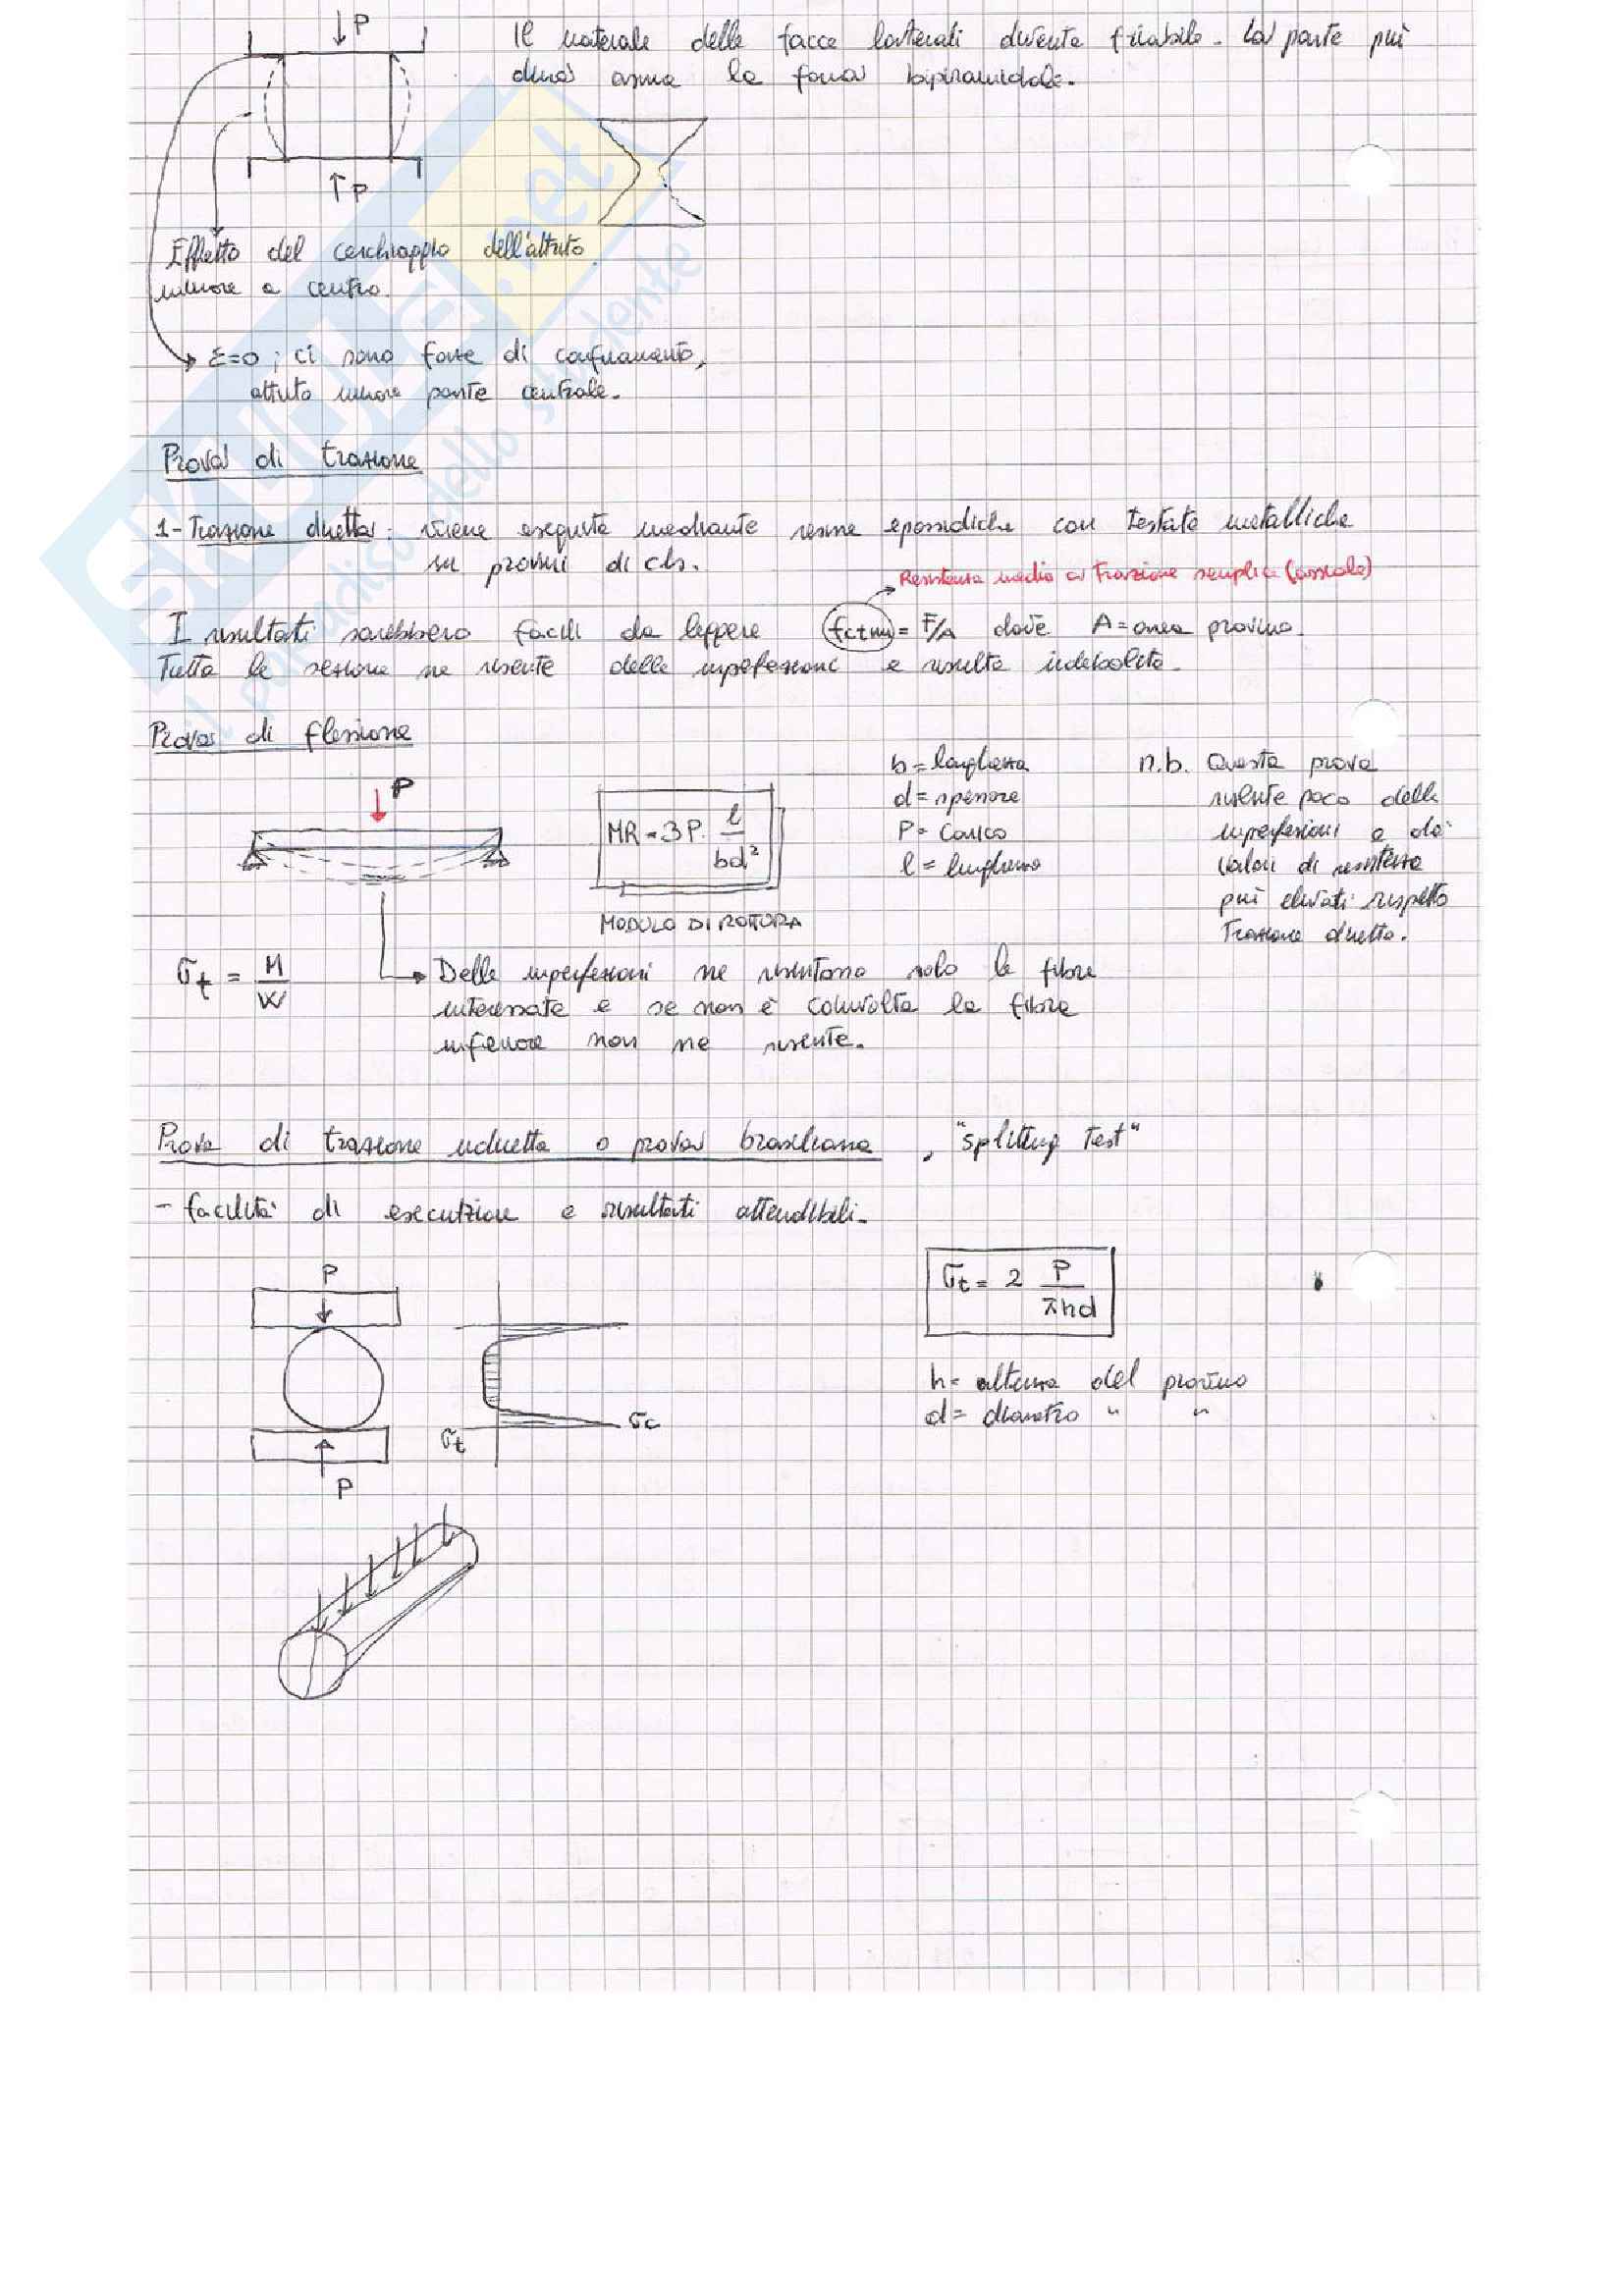 ↓P
Il materiale delle facce laterali diventa friabile. La parte più
dura assume la forma bipiramidale.
↑P
Effetto del cerchiaggio dell'attrito
minore a centro.
ε=0 ; ci sono forze di confinamento,
attrito minore parte centrale.
Prova di trazione
1- Trazione diretta: viene eseguita mediante resine epossidiche con testate metalliche
su provini di cls.
Resistenza media a trazione semplice (assiale)
I risultati sarebbero facili da leggere fctm = F/A dove A = area provino.
Tutta la sezione ne risente delle imperfezioni e risulta indebolita.
Prova di flessione
P
MR = 3P · l/bd²
MODULO DI ROTTURA
b = larghezza
d = spessore
P = Carico
l = lunghezza
n.b. Questa prova
risente poco delle
imperfezioni e dà
valori di resistenza
più elevati rispetto
Trazione diretta.
σt = M/W
Delle imperfezioni ne risentono solo le fibre
interessate e se non è coinvolta la fibra
inferiore non ne risente.
Prova di trazione indiretta o prova brasiliana, "splitting test"
- facilità di esecuzione e risultati attendibili.
P
σt = 2 P/πhd
h = altezza del provino
d = diametro " "
σt
σc
P
SKUOLA.net
il paradiso dello studente